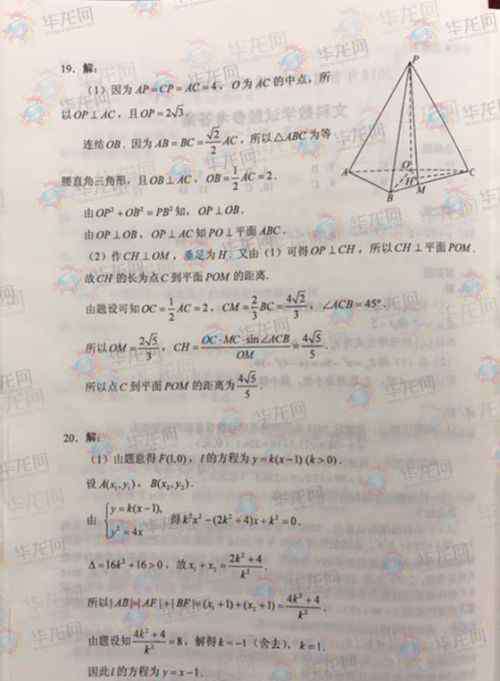 19. 解：
（1）因为 AP=CP=AC=4，O为AC的中点，所
以OP⊥AC，且OP=2√3.
连结OB. 因为AB=BC=√2/2 AC，所以△ABC为等
腰直角三角形，且OB⊥AC，OB=1/2 AC=2.
由OP²+OB²=PB²知，OP⊥OB.
由OP⊥OB，OP⊥AC知PO⊥平面ABC.
（2）作CH⊥OM，垂足为H. 又由（1）可得OP⊥CH，所以CH⊥平面POM.
故CH的长为点C到平面POM的距离.
由题设可知OC=1/2 AC=2，CM=2/3 BC=4√2/3，∠ACB=45°.
所以OM=2√5/3，CH=OC·MC·sin∠ACB/OM=4√5/5.
所以点C到平面POM的距离为4√5/5.
P
A
O
C
H
M
B
20. 解：
（1）由题意得F(1,0)，l的方程为y=k(x−1)(k>0).
设A(x₁,y₁)，B(x₂,y₂).
由{y=k(x−1), y²=4x 得k²x²−(2k²+4)x+k²=0.
Δ=16k²+16>0，故x₁+x₂=(2k²+4)/k².
所以|AB|=|AF|+|BF|=(x₁+1)+(x₂+1)=(4k²+4)/k².
由题设知(4k²+4)/k²=8，解得k=−1（舍去），k=1.
因此l的方程为y=x−1.
华龙网